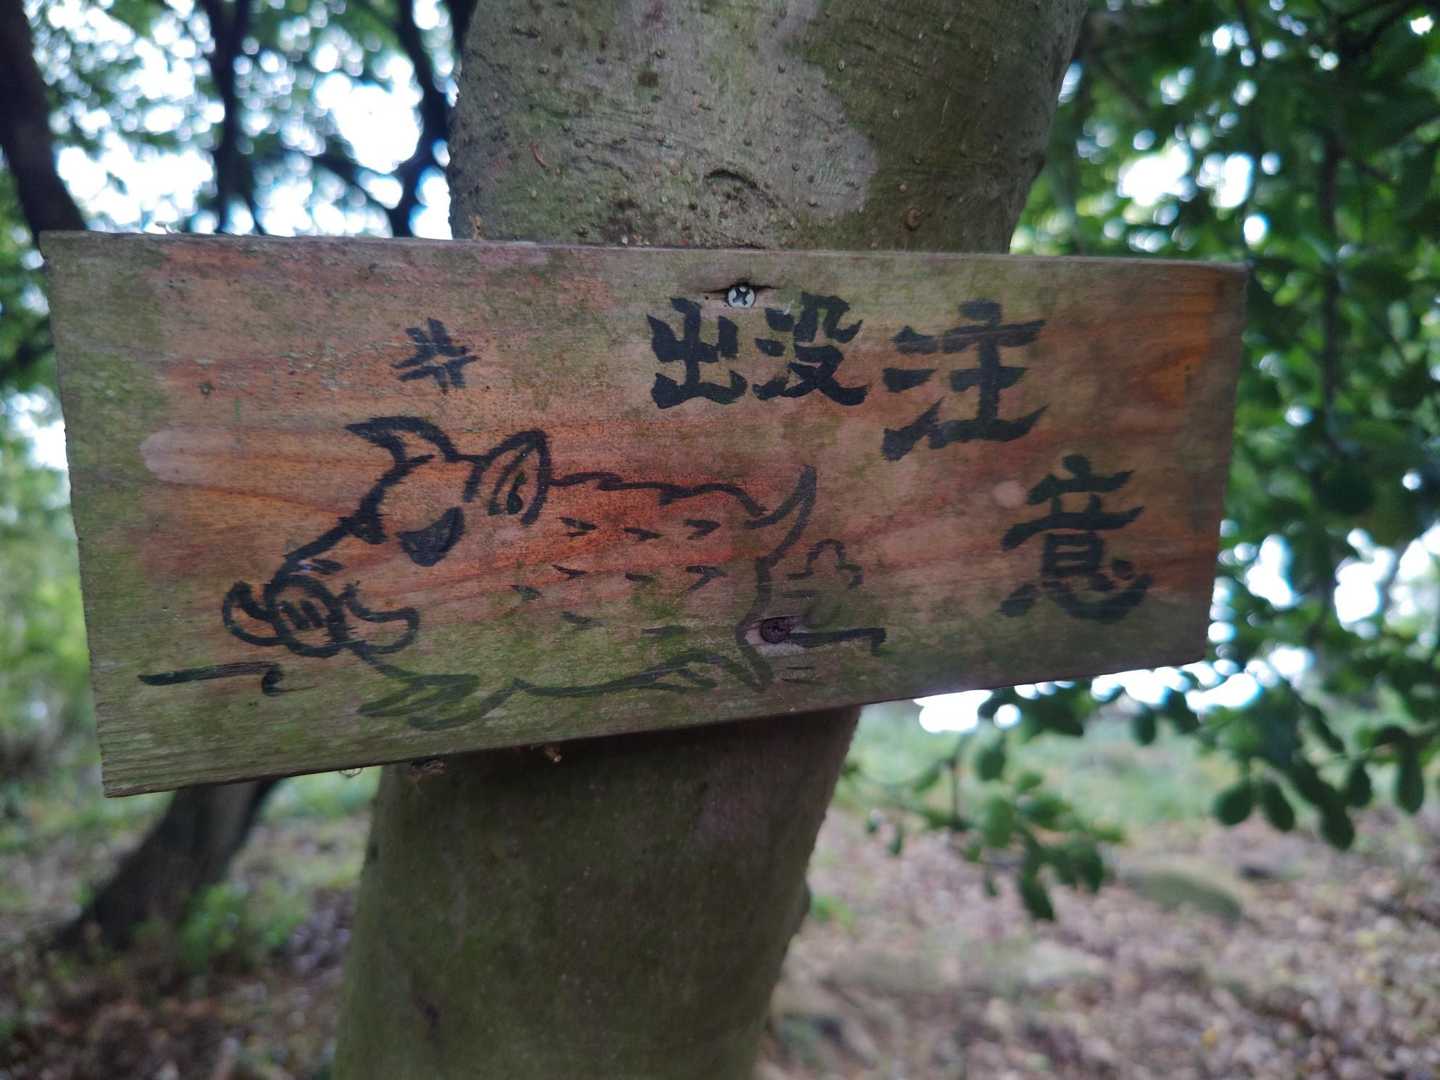 出没注
意